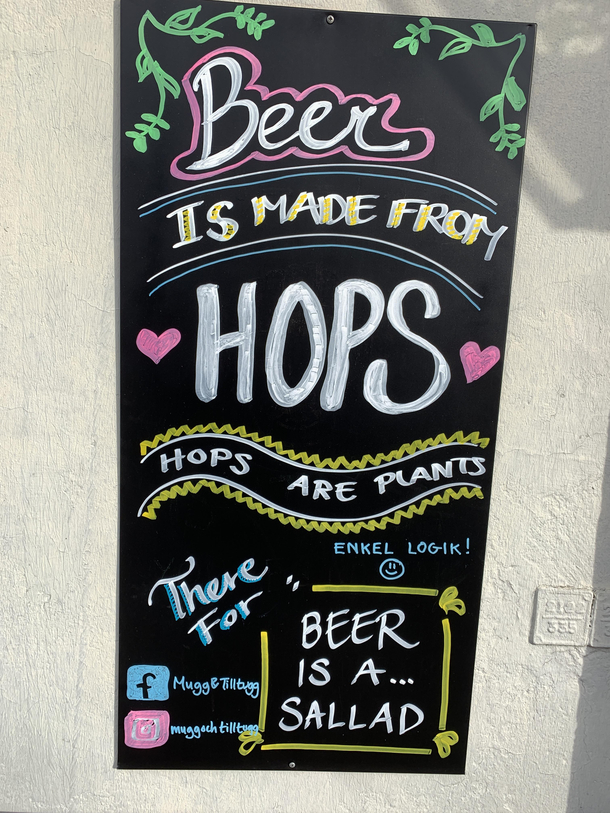 Beer
IS MADE FROM
HOPS
HOPS ARE PLANTS
ENKEL LOGIK!
There
For
"
BEER
IS A...
SALLAD
f Mugg&Tilltugg
muggochtilltugg
335